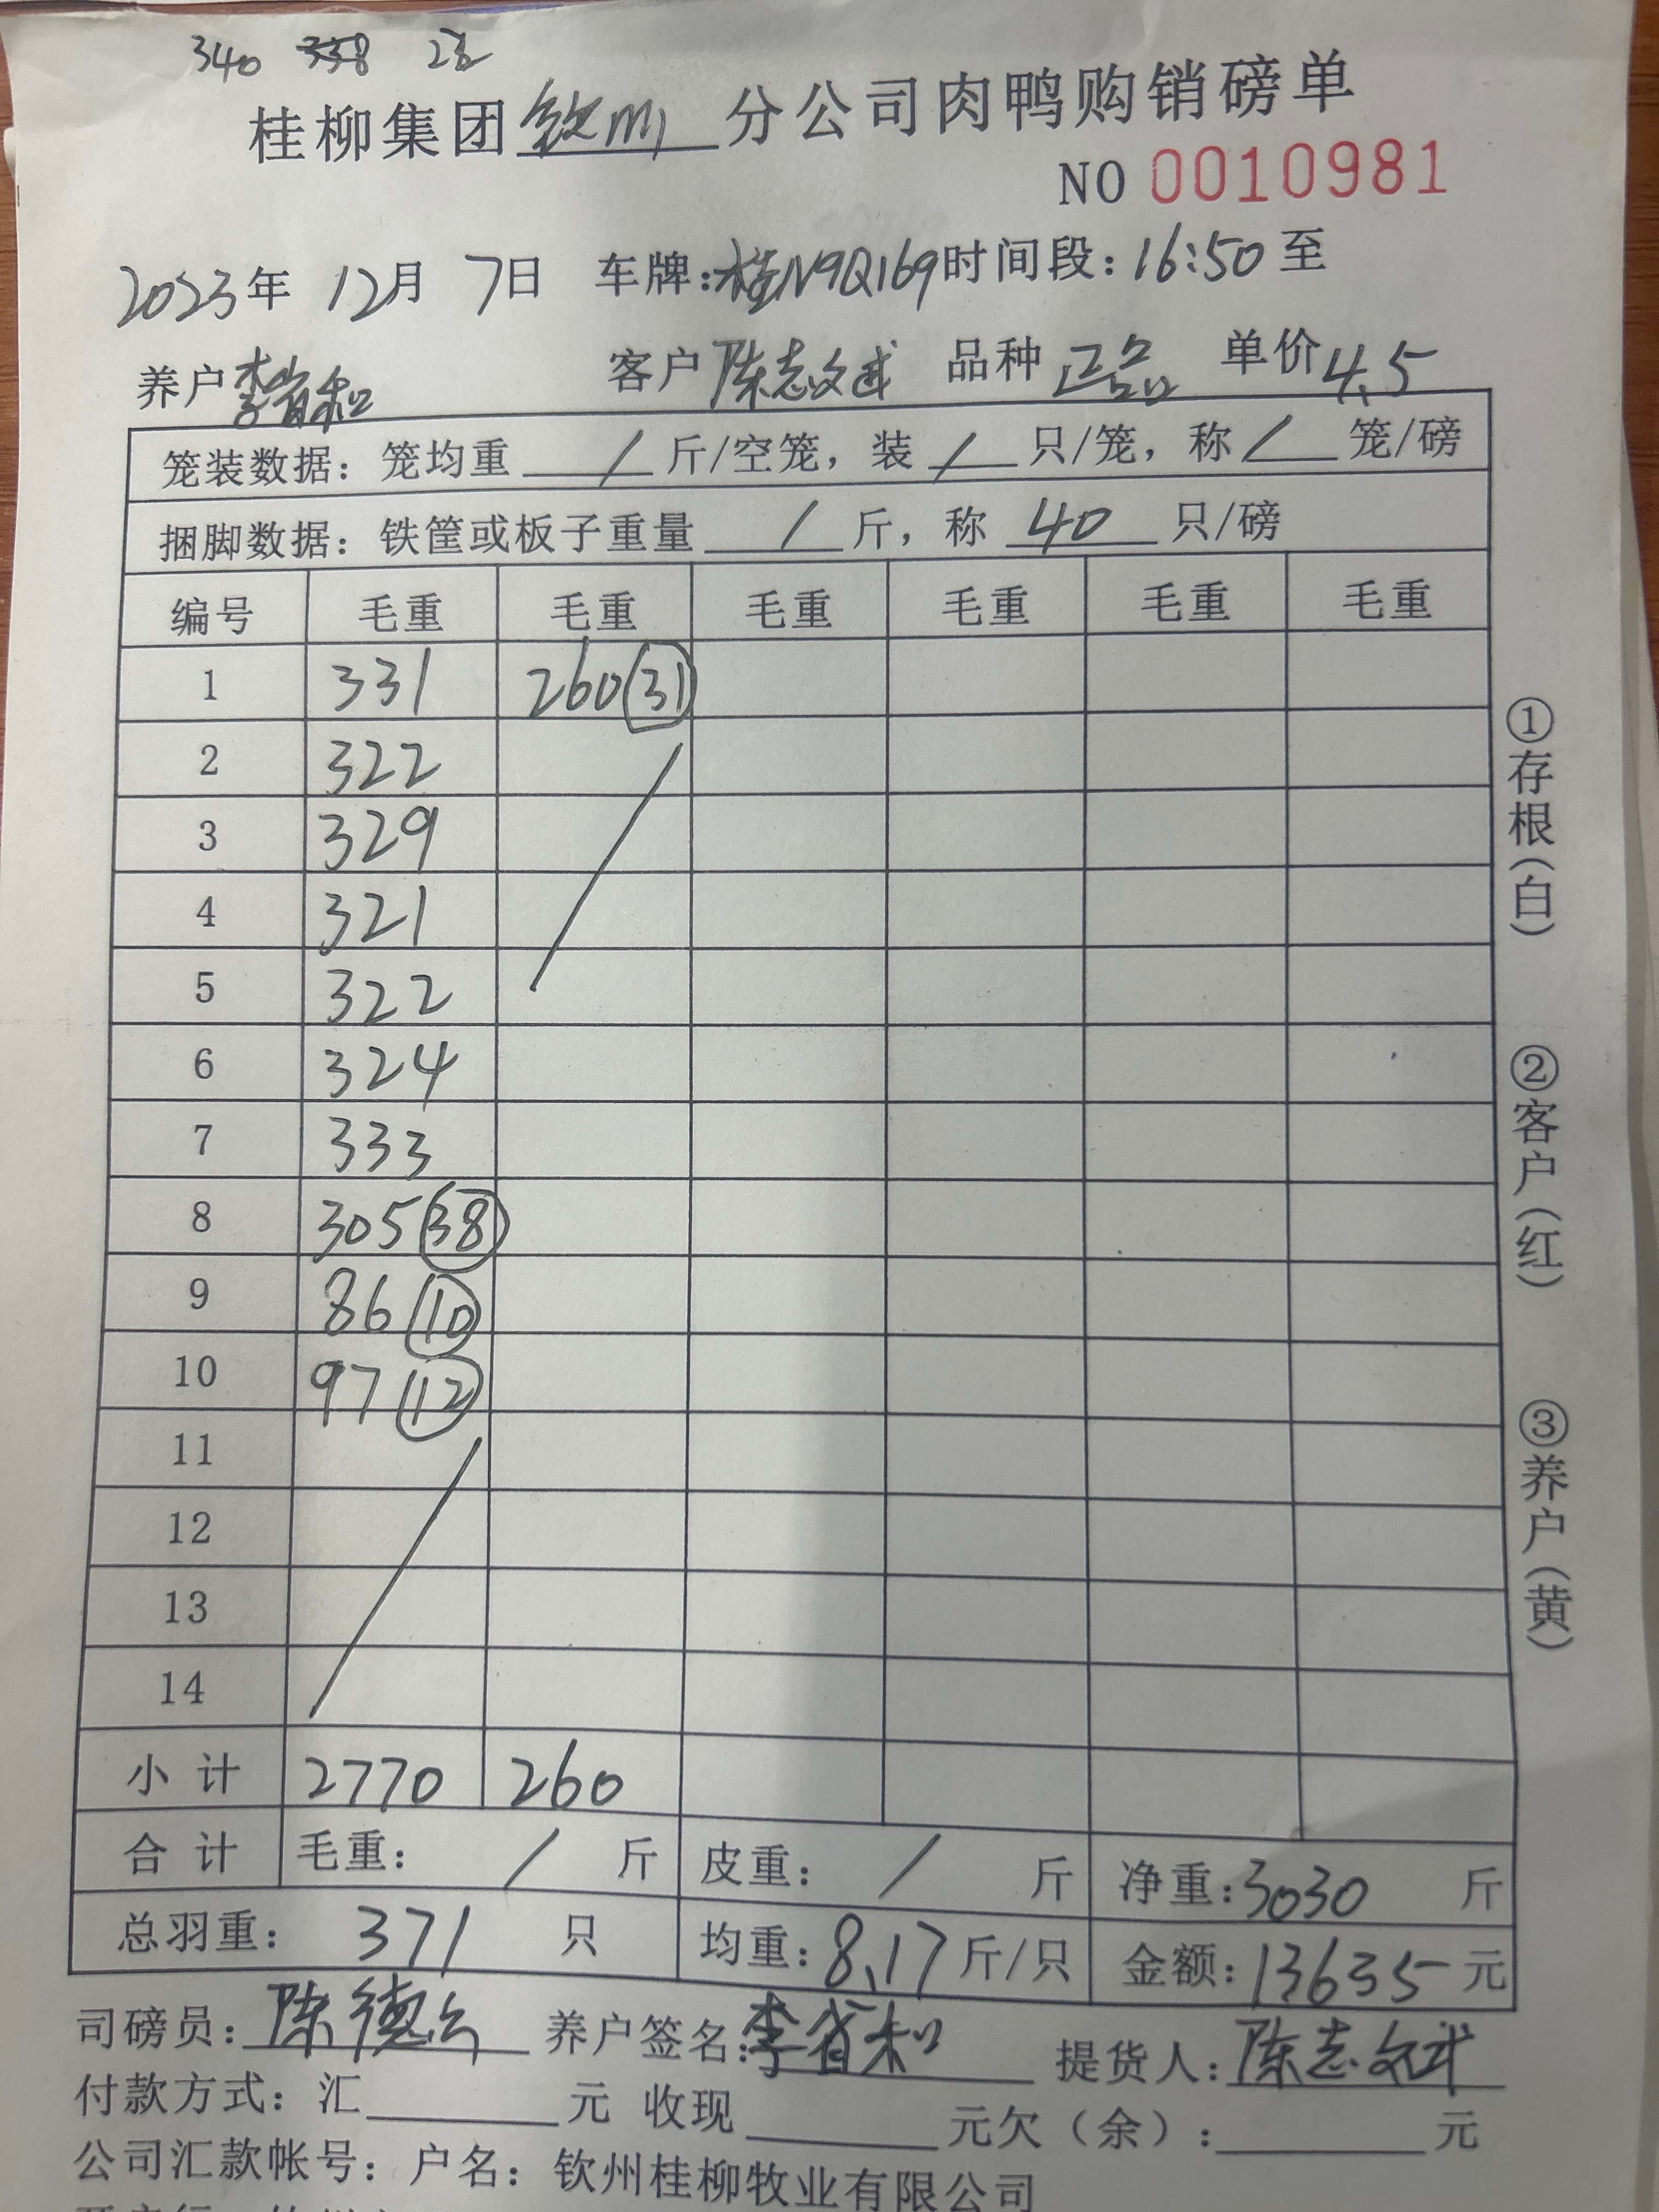 340 338
桂柳集团钦州分公司肉鸭购销磅单
NO 0010981
2023年 12月 7日 车牌:桂N9Q169时间段:16:50至
养户李省和 客户陈志斌 品种正品 单价4.5
笼装数据: 笼均重 / 斤/空笼, 装 / 只/笼, 称 / 笼/磅
捆脚数据: 铁筐或板子重量 / 斤, 称 40 只/磅
编号 毛重 毛重 毛重 毛重 毛重 毛重
1 331 260(31)
2 322
3 329
4 321
5 322
6 324
7 333
8 305(38)
9 86(10)
10 97(12)
11
12
13
14
小计 2770 260
合计 毛重: / 斤 皮重: / 斤 净重:3030 斤
总羽重: 371 只 均重:8.17斤/只 金额:13635元
司磅员:陈德 养户签名:李省和 提货人:陈志斌
付款方式: 汇 元 收现 元欠(余): 元
公司汇款帐号: 户名: 钦州桂柳牧业有限公司
①存根(白)
②客户(红)
③养户(黄)